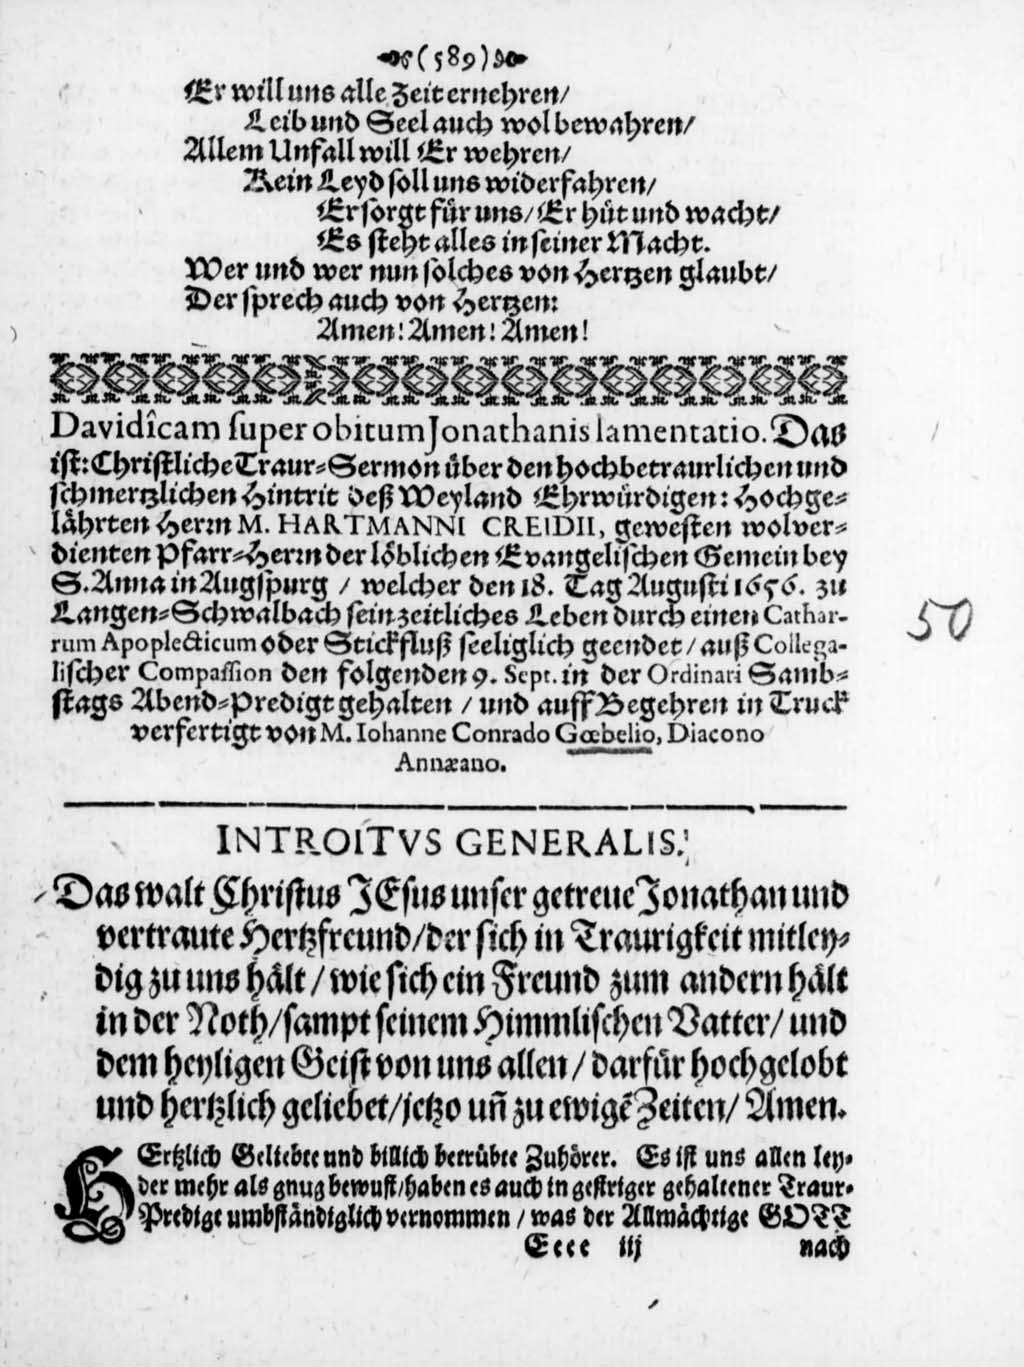 (589)
Er will uns alle Zeit ernehren/
Leib und Seel auch wol bewahren/
Allem Unfall will Er wehren/
Kein Leyd soll uns widerfahren/
Er sorgt für uns/ Er hüt und wacht/
Es steht alles in seiner Macht.
Wer und wer nun solches von Hertzen glaubt/
Der sprech auch von Hertzen:
Amen! Amen! Amen!
Davidîcam super obitum Jonathanis lamentatio. Das
ist: Christliche Traur-Sermon über den hochbetraurlichen und
schmertzlichen Hintrit deß Weyland Ehrwürdigen: Hochge-
lährten Herrn M. HARTMANNI CREIDII, gewesten wolver-
dienten Pfarr-Herrn der löblichen Evangelischen Gemein bey
S. Anna in Augspurg / welcher den 18. Tag Augusti 1656. zu
Langen-Schwalbach sein zeitliches Leben durch einen Cathar-
rum Apoplecticum oder Stickfluß seeliglich geendet/ auß Collega-
lischer Compassion den folgenden 9. Sept. in der Ordinari Samb-
stags Abend-Predigt gehalten / und auff Begehren in Truck
verfertigt von M. Iohanne Conrado Gœbelio, Diacono
Annæano.
50
INTROITVS GENERALIS.
Das walt Christus JEsus unser getreue Jonathan und
vertraute Hertzfreund/der sich in Traurigkeit mitley-
dig zu uns hält / wie sich ein Freund zum andern hält
in der Noth/sampt seinem Himmlischen Vatter/ und
dem heyligen Geist von uns allen / darfür hochgelobt
und hertzlich geliebet/jetzo uñ zu ewigẽ Zeiten/ Amen.
HErtzlich Geliebte und billich betrübte Zuhörer. Es ist uns allen ley-
der mehr als gnug bewust/haben es auch in gestriger gehaltener Traur-
Predigt umbständiglich vernommen / was der Allmächtige GOTT
Eeee iij nach